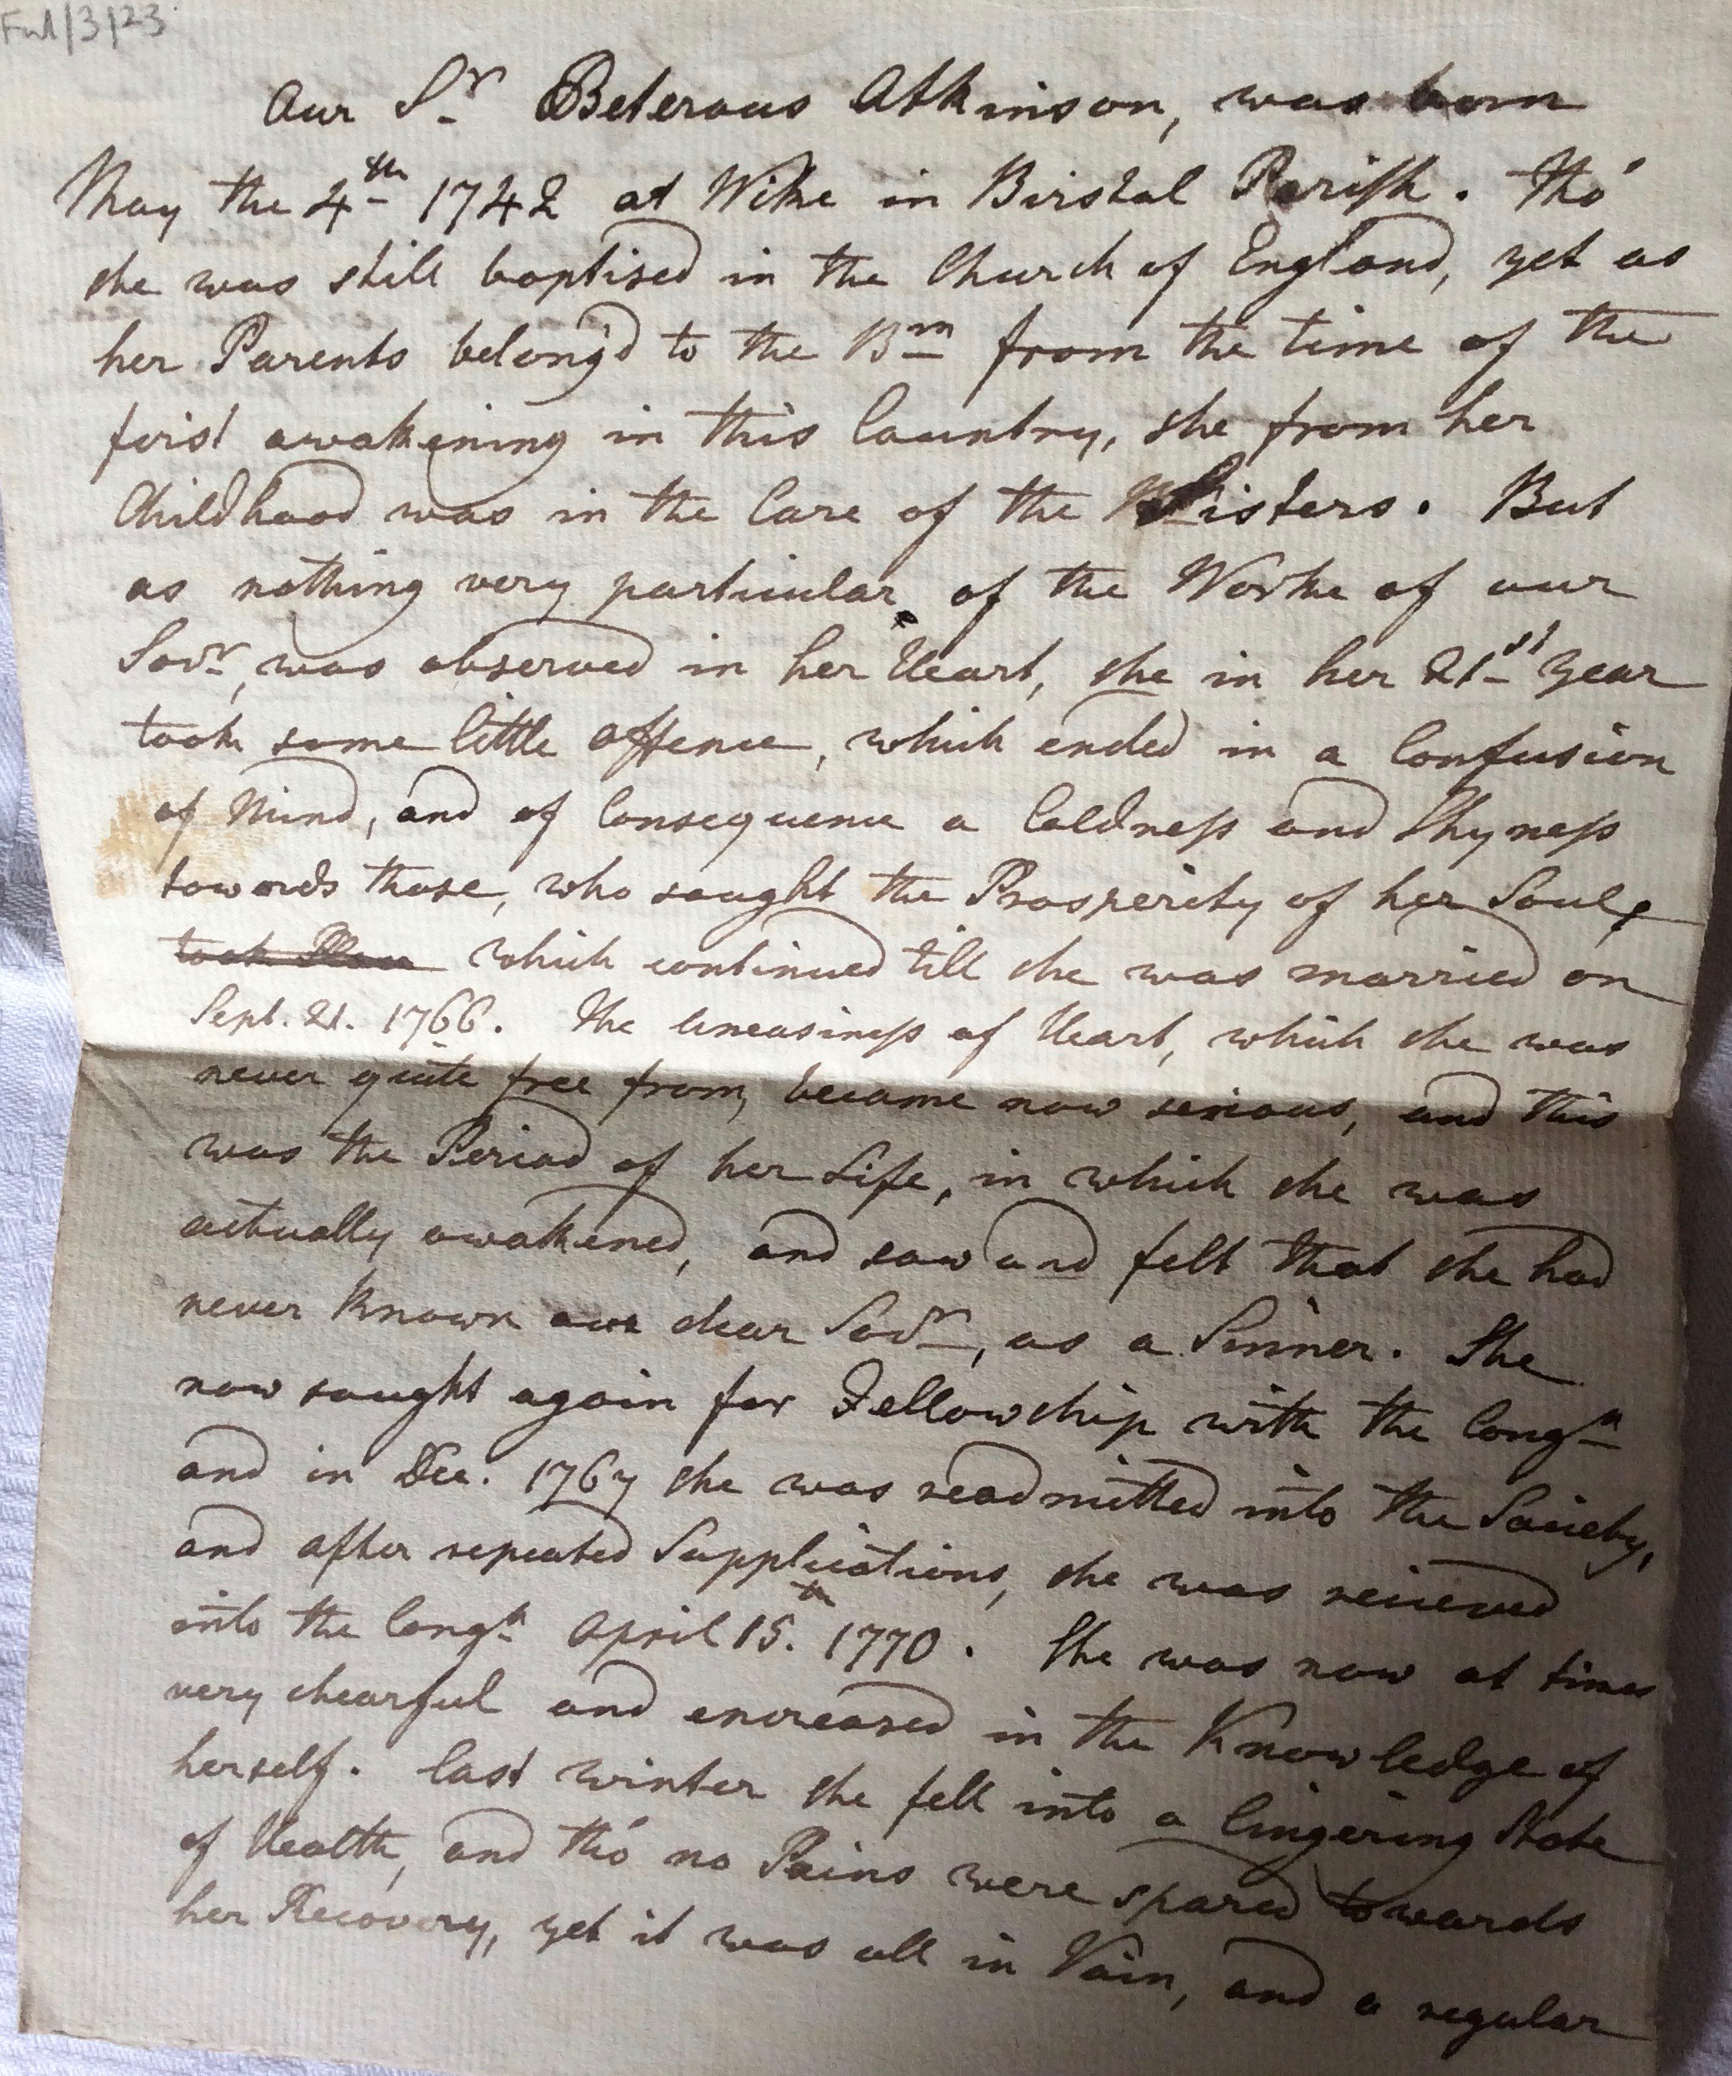 Ful/3/23
Our Sr Beterous Atkinson, was born
May the 4th 1742 at Wike in Birstal Parish. Tho'
she was still baptised in the Church of England, yet as
her Parents belong'd to the Brn from the time of the
first awakening in this Country, she from her
Childhood was in the Care of the Sisters. But
as nothing very particular of the Worke of our
Savr, was observed in her Heart, she in her 21st Year
took some little Offence, which ended in a Confusion
of Mind, and of Consequence a Coldness and Shyness
towards those, who sought the Prosperity of her Soul,
took Place which continued till she was married on
Sept. 21. 1766. The Uneasiness of Heart, which she was
never quite free from, became now serious, and this
was the Period of her Life, in which she was
actually awakened, and saw and felt that she had
never known our dear Savr, as a Sinner. She
now sought again for Fellowship with the Congn
and in Dec. 1767 she was readmitted into the Society,
and after repeated Supplications, she was recieved
into the Congn April 15th 1770. She was now at times
very chearful and encreased in the Knowledge of
herself. Last winter she fell into a lingering State
of Health, and tho' no Pains were spared towards
her Recovery, yet it was all in Vain, and a regular